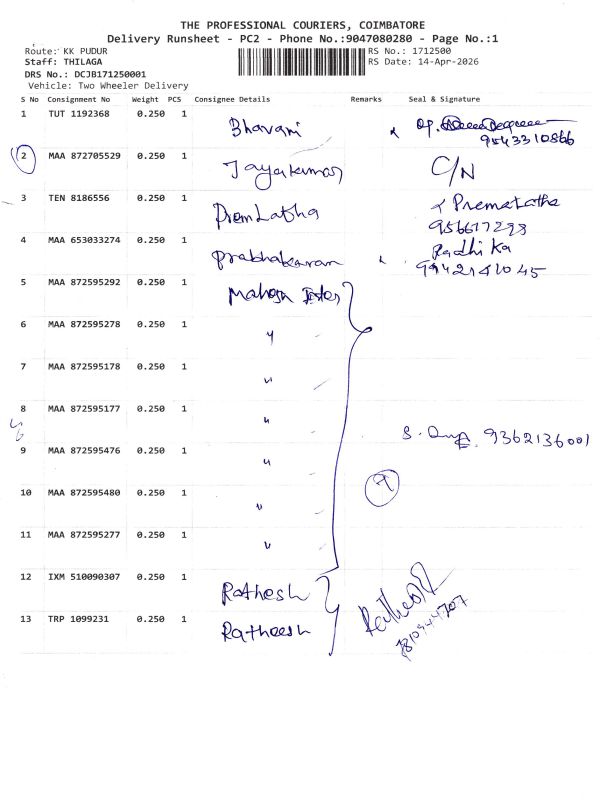 THE PROFESSIONAL COURIERS, COIMBATORE
Delivery Runsheet - PC2 - Phone No.:9047080280 - Page No.:1
Route: KK PUDUR
RS No.: 1712500
Staff: THILAGA
RS Date: 14-Apr-2026
DRS No.: DCJB171250001
Vehicle: Two Wheeler Delivery
S No Consignment No Weight PCS Consignee Details Remarks Seal & Signature
1 TUT 1192368 0.250 1 Bhavani
9543310866
2 MAA 872705529 0.250 1 Jayakumar C/N
3 TEN 8186556 0.250 1 PremLatha Premalatha
956617293
4 MAA 653033274 0.250 1 Prabhakaran Radhika
9942141045
5 MAA 872595292 0.250 1 Mahesh
6 MAA 872595278 0.250 1 "
7 MAA 872595178 0.250 1 "
8 MAA 872595177 0.250 1 "
9362136001
9 MAA 872595476 0.250 1 "
10 MAA 872595480 0.250 1 "
11 MAA 872595277 0.250 1 "
12 IXM 510090307 0.250 1 Rathesh
13 TRP 1099231 0.250 1 Ratheesh